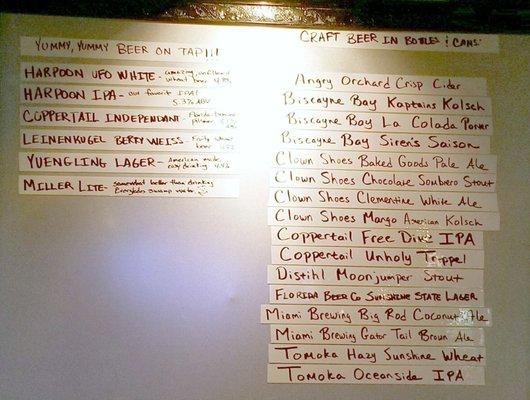 YUMMY, YUMMY BEER ON TAP!!!
HARPOON UFO WHITE - amazing, unfiltered
wheat beer 4.8%
HARPOON IPA - our favorit IPA!
5.9% ABV
COPPERTAIL INDEPENDANT - Florida
pilsner
LEINENKUGEL BERRY WEISS - Fruity wheat
beer
YUENGLING LAGER - American made,
easy drinking 4.4%
MILLER LITE - somewhat better than drinking
Everglades swamp water
CRAFT BEER IN BOTTLES & CANS:
Angry Orchard Crisp Cider
Biscayne Bay Kaptains Kolsch
Biscayne Bay La Colada Porter
Biscayne Bay Siren's Saison
Clown Shoes Baked Goods Pale Ale
Clown Shoes Chocolate Sombrero Stout
Clown Shoes Clementine White Ale
Clown Shoes Mango American Kolsch
Coppertail Free Dive IPA
Coppertail Unholy Trippel
Distihl Moonjumper Stout
FLORIDA BEER CO SUNSHINE STATE LAGER
Miami Brewing Big Rod Coconut Ale
Miami Brewing Gator Tail Brown Ale
Tomoka Hazy Sunshine Wheat
Tomoka Oceanside IPA